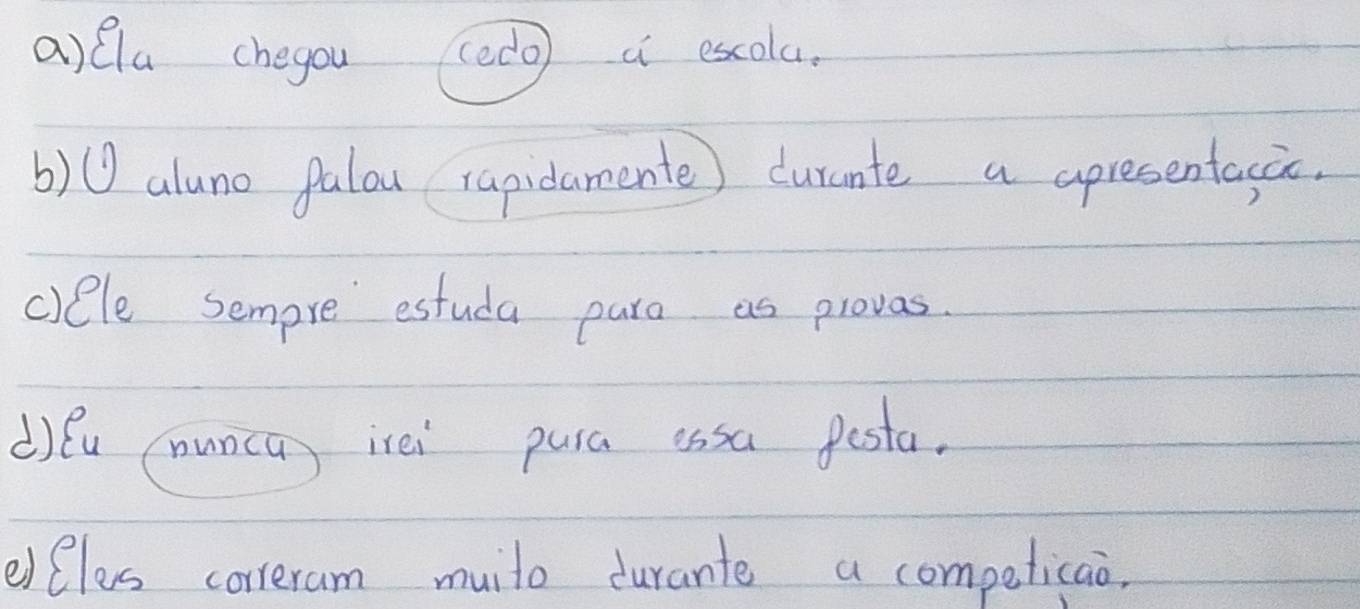 a) Ela chegou cedo à escola.
b) O aluno falou rapidamente durante a apresentação.
c) Ele sempre estuda para as provas.
d) Eu nunca irei para essa festa.
e) Eles correram muito durante a competição.